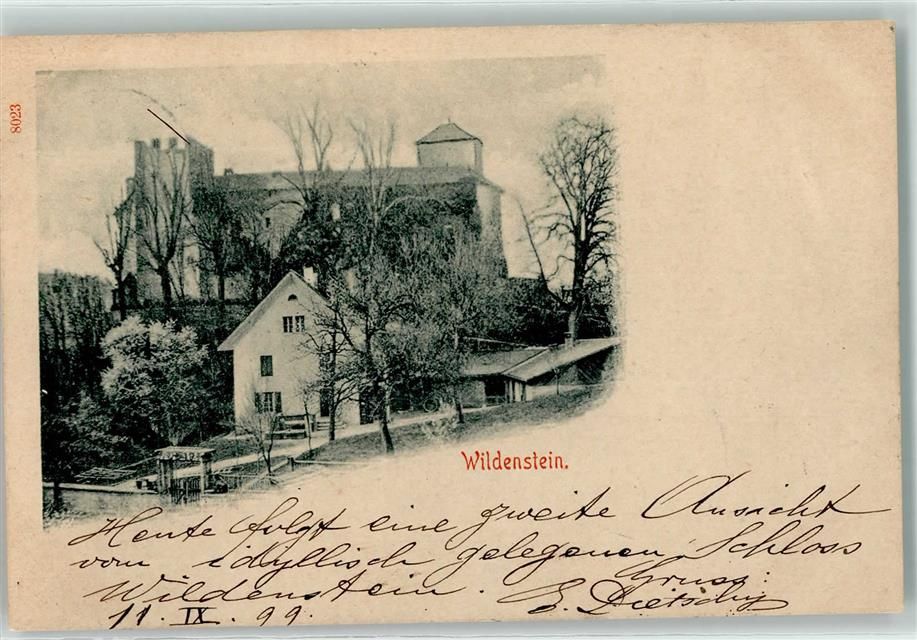 8023
Wildenstein.
Heute folgt eine zweite Ansicht
vom idyllisch gelegenen Schloss
Wildenstein. Gruss:
E. Dietschy
11. IX. 99.